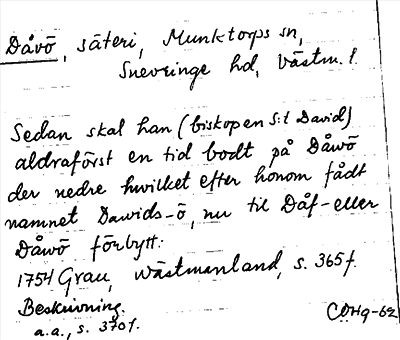 Dåvö, säteri, Munktorps sn,
Snevringe hd, Västm. l.
Sedan skal han (biskopen S:t David)
aldraförst en tid bodt på Dåwö
der nedre hwilket efter honom fådt
namnet Dawids-ö, nu til Dåf- eller
Dåwö förbytt.
1754 Grau, Wästmanland, s. 365 f.
Beskrivning.
a.a., s. 370 f.
COHq-62